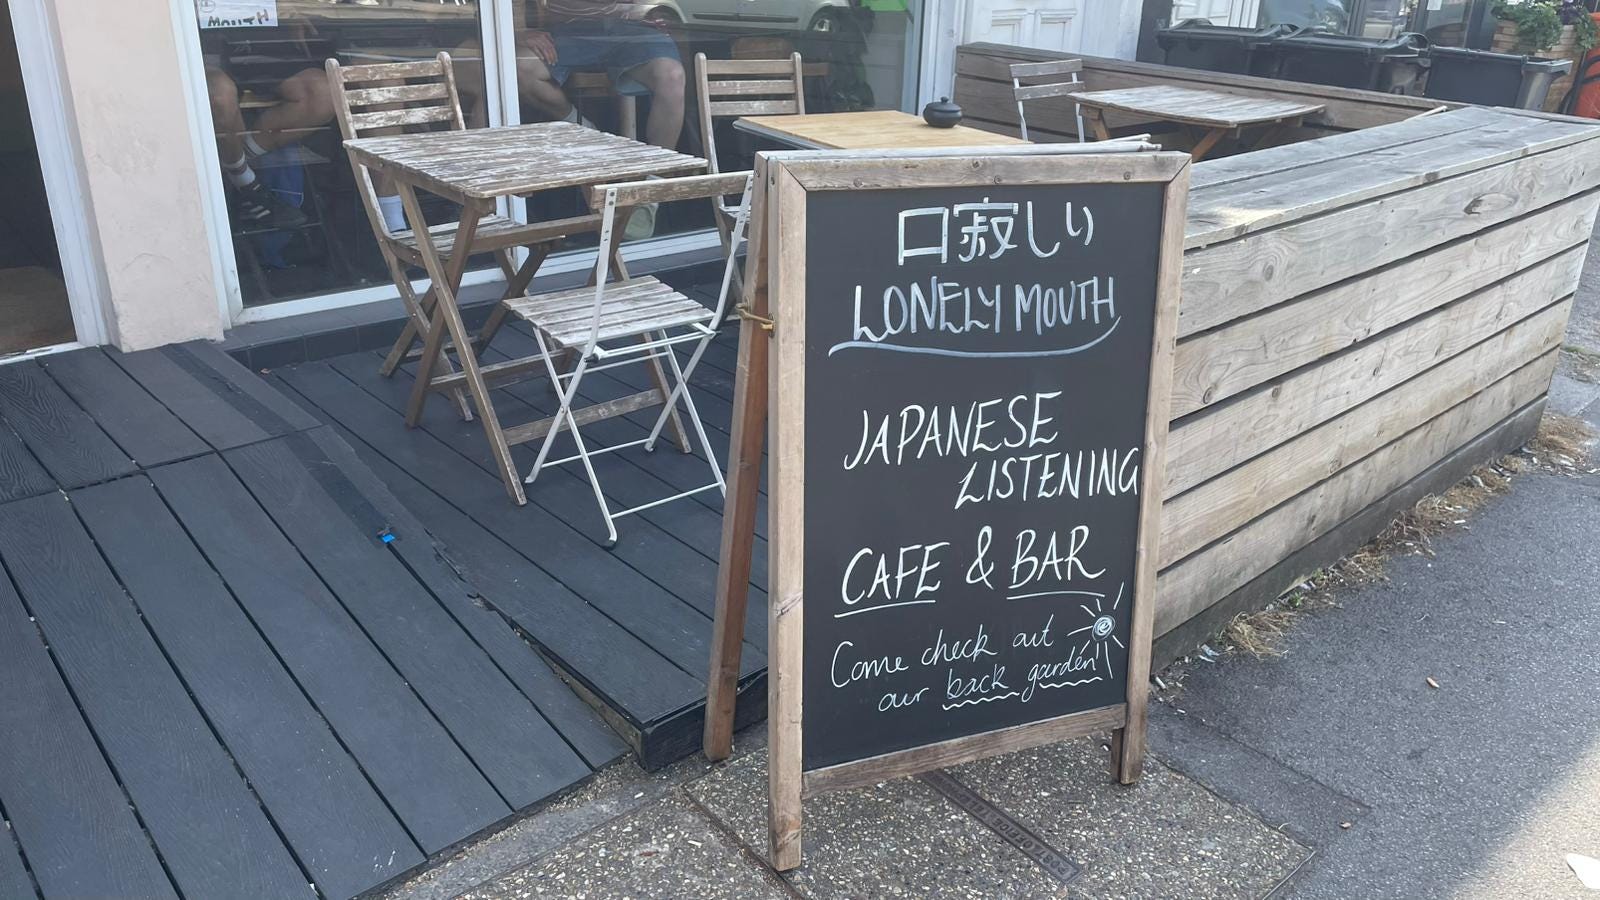 MOUTH
口寂しい
LONELY MOUTH
JAPANESE
LISTENING
CAFE & BAR
Come check out
our back garden
POST OFFICE TELEPHONES